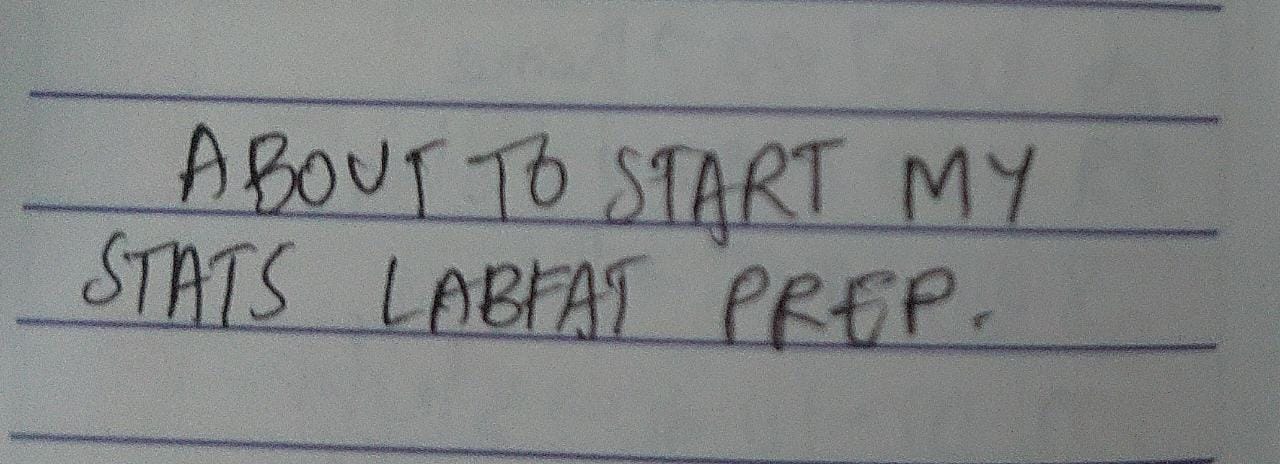 ABOUT TO START MY
STATS LABFAT PREP.